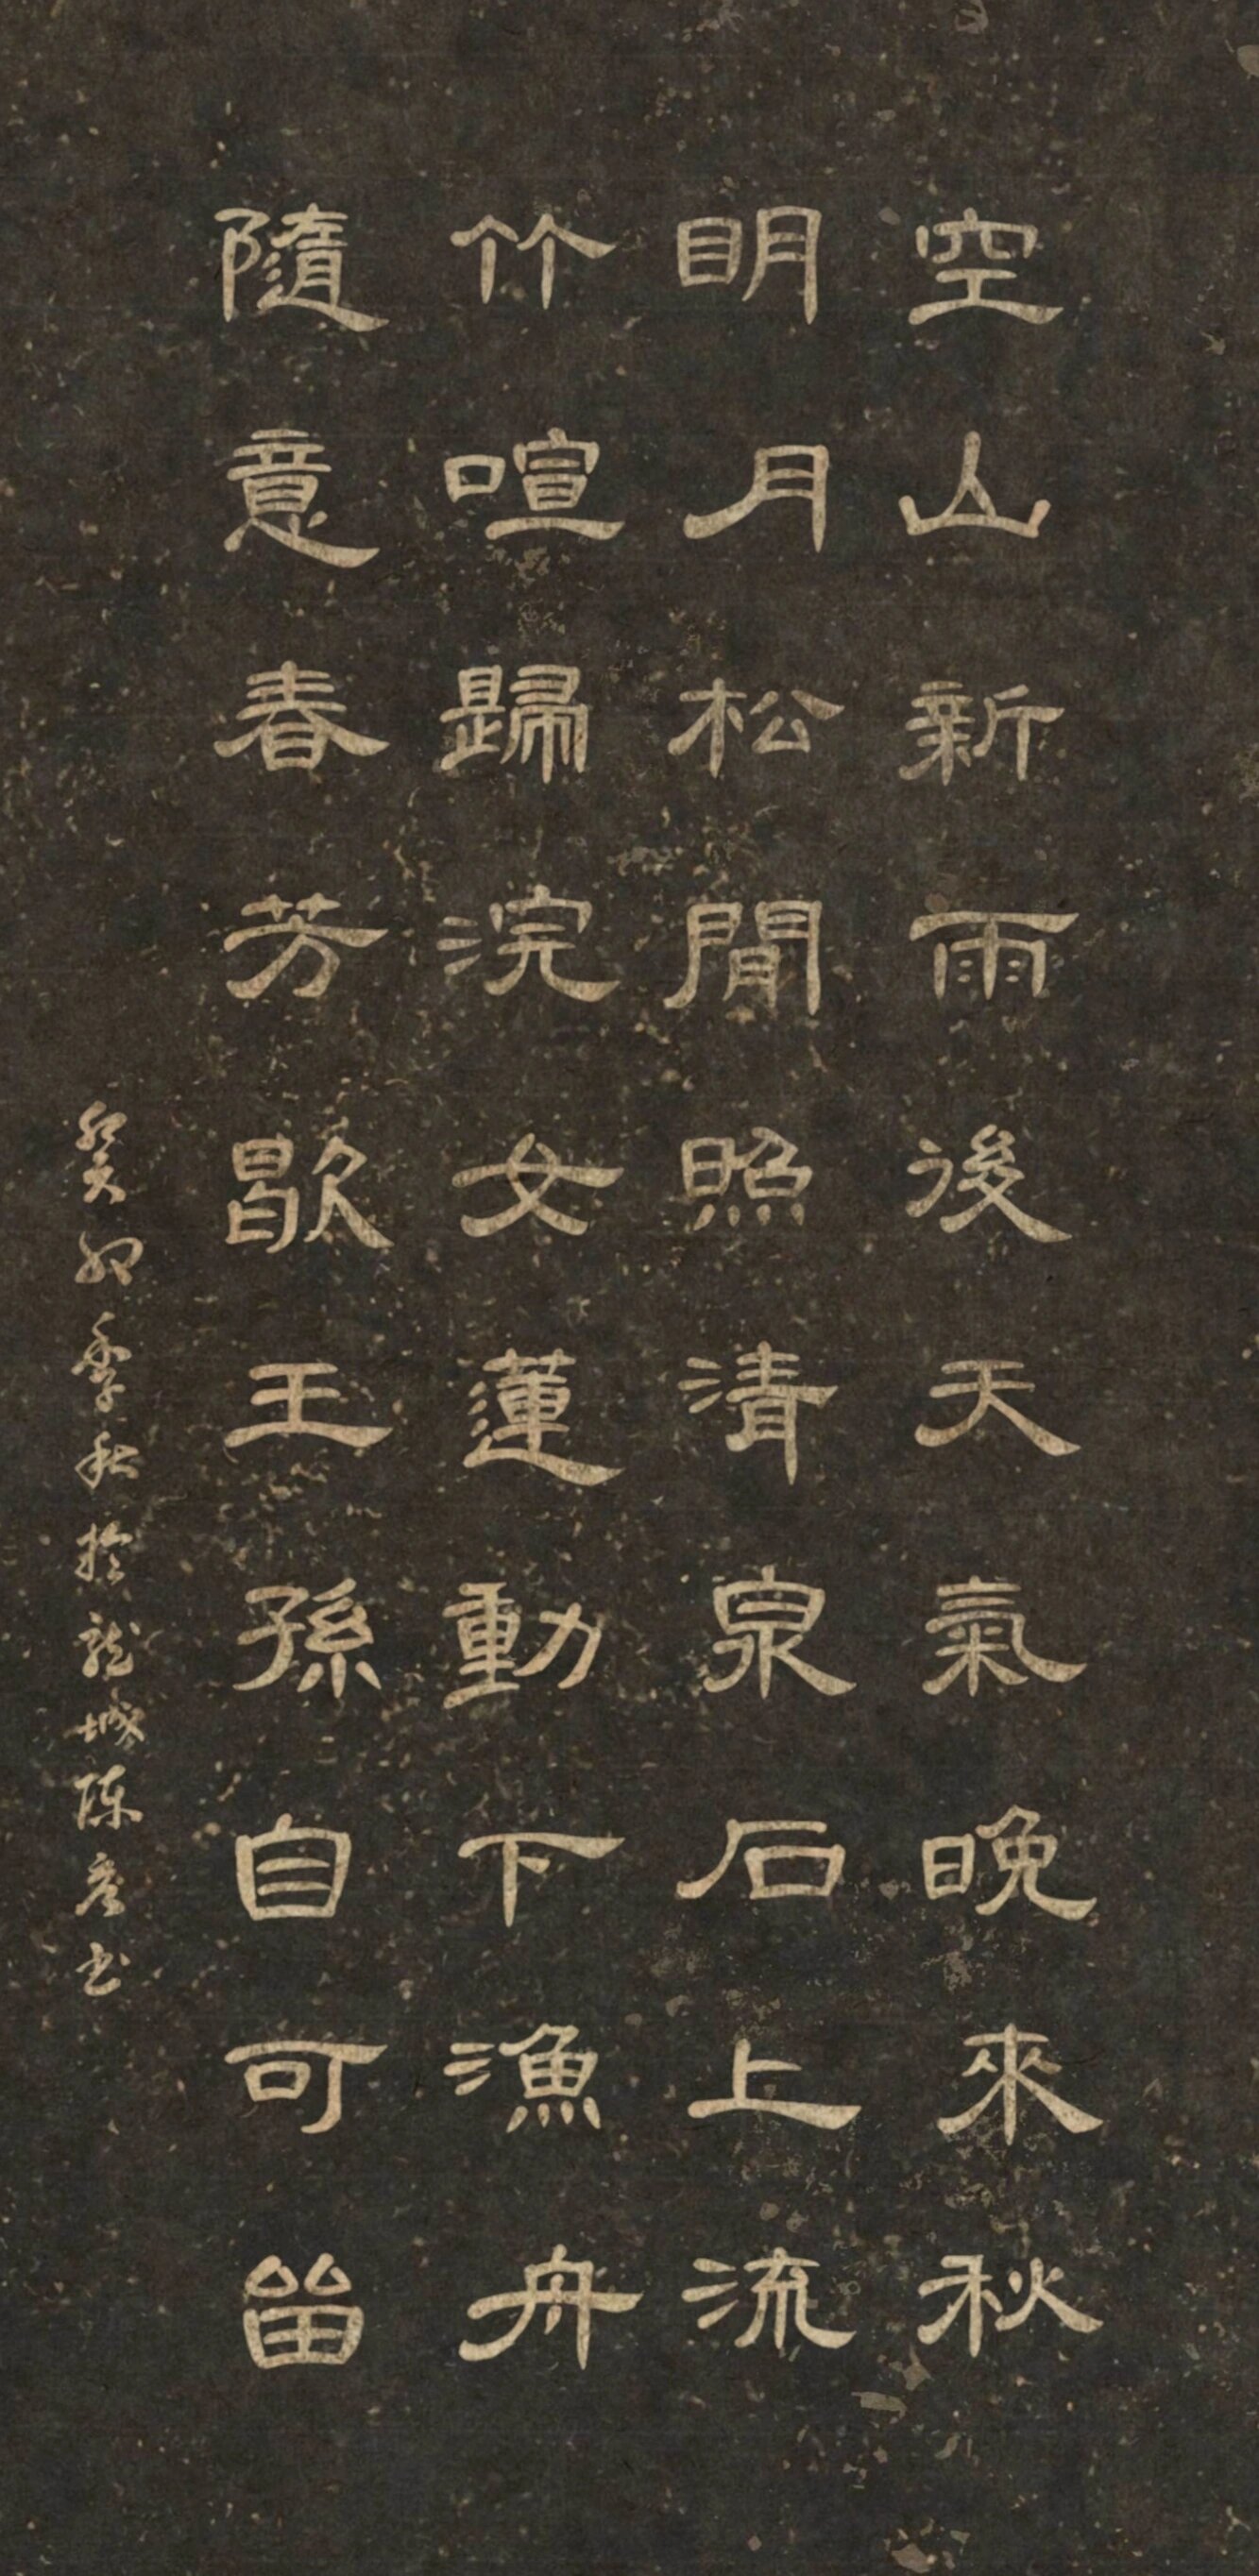 空山新雨後天氣晚來秋
明月松間照清泉石上流
竹喧歸浣女蓮動下漁舟
隨意春芳歇王孫自可留
癸卯季秋於龍城陈彦书